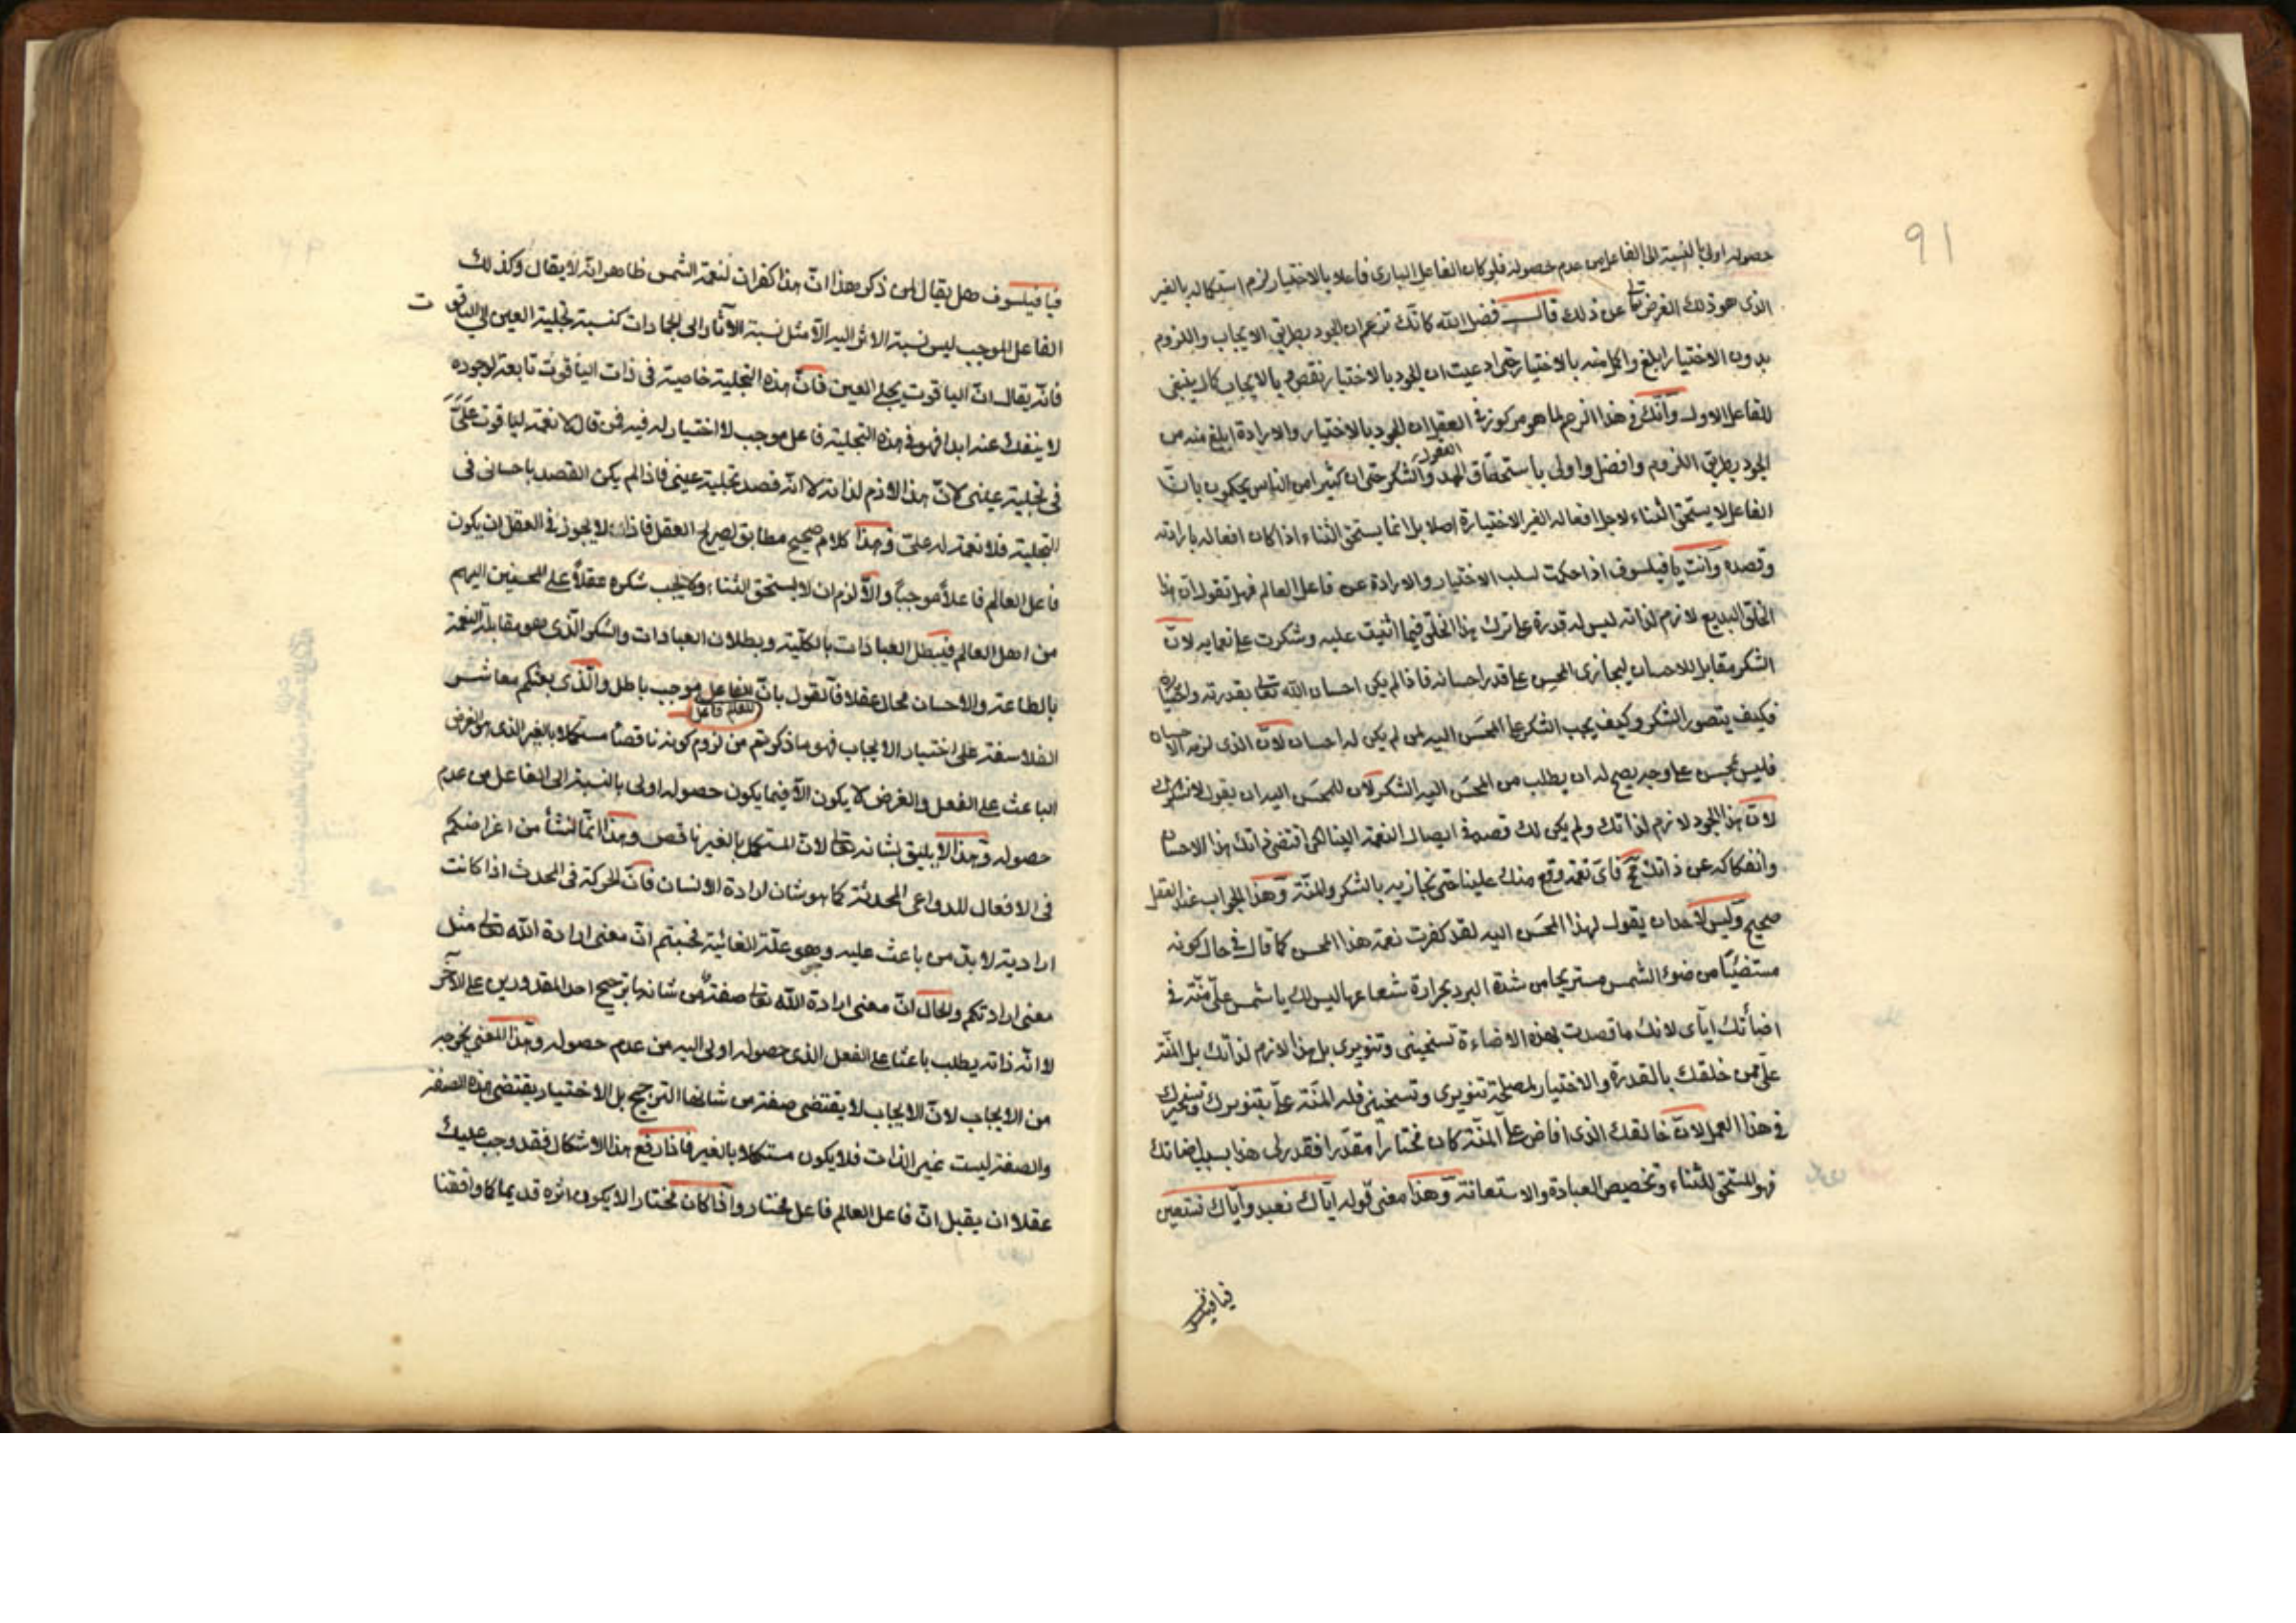 91
حصوله اولى بالنسبة الى الفاعل من عدم حصوله فلو كان الفاعل البارى فاعلا بالاختيار لزم استكماله بالغير
الذى هو ذلك الغرض تعالى عن ذلك قالــت فضل الله كانك تزعم ان الجود بطريق الايجاب واللزوم
بدون الاختيار ابلغ واكمل منه بالاختيار حتى ادعيت ان الجود بالاختيار نقص وبالايجاب كمال ينبغى
للفاعل الاول وانك فى هذا الزعم لما هو مركوز فى العقول ان الجود بالاختيار والارادة ابلغ منه من
الجود بطريق اللزوم وافضل واولى باستحقاق الحمد والشكر حتى ان كثيرا من الناس يحكون بان
الفاعل لا يستحق الثناء لاجل افعاله الغير الاختيارة اصلا بل انما يستحق الثناء اذا كان افعاله بارادته
وقصده وانت يا فيلسوف اذا حكمت لسلب الاختيار والارادة عن فاعل العالم فهل تقول ان هذا
الخلق البديع لازم لذاته ليس له قدرة على ترك هذا الخلق فيما اثنيت عليه وشكرت على نعمايه لان
الشكر مقابل للاحسان ليجازى المحسن على قدر احسانه فاذا لم يكن احسان الله تعالى بقدرته واختياره
فكيف يتصور الشكر وكيف يجب الشكر على المحسَن اليه لمن لم يكن له احسان لان الذى لزمه الاحسان
فليس بمحسن على وجه يصح له ان يطلب من المحسَن اليه الشكر لان للمحسَن اليه ان يقول لا نشكرك
لان هذا الجود لازم لذاتك ولم يكن لك قصد فى ايصال النعمة الينا لكن اقتضى ذاتك هذا الاحسان
وانفكاكه عن ذاتك مح فاى نعمة وقع منك علينا حتى نجازيه بالشكر والمنة وهذا الجواب عند العقل
صحيح وليس لاحد ان يقول لهذا المحسَن اليه لقد كفرت نعمة هذا المحسن كما قال فى حال كونه
مستضيئا من ضوء الشمس مستريحا من شدة البرد بحرارة شعاعها ليس لك يا شمس علىّ منّة فى
اضأتك اياى لانك ما قصدت بهذه الاضاءة تسخينى وتنويرى بل هذا لازم لذاتك بل المنة
علىّ ممن خلقك بالقدرة والاختيار لمصلحة تنويرى وتسخينى فله المنة علىّ بتنويرك وتسخيرك
فى هذا العمل لان خالقك الذى افاض علىّ المنة كان مختارا مقدرا فقدر لى هذا بسبب اضائتك
فهو المستحق للثناء وتخصيص العبادة والاستعانة وهذا معنى قوله اياك نعبد واياك نستعين
فيا فيلسو
فيا فيلسوف هل يقال لمن ذكر هذا انّ هذا كفران لنعمة الشمس ظاهر انه لا يقال وكذلك
الفاعل الموجب ليس نسبة الاثر اليه الّا مثل نسبة الآثار الى الجمادات كنسبة تجلية العين الى الياقوت
فانه يقال ان الياقوت يجلى العين فانّ هذه التجلية خاصية فى ذات الياقوت تابعة لوجوده
لا ينفك عنه ابدا فهو فى هذه التجلية فاعل موجب لا اختيار له فيه فمن قال لا نعمة لياقوت علىّ
فى تجلية عينى لانّ هذا لازم لذاته لا انه قصد تجلية عينى فاذا لم يكن القصد باحسانى فى
التجلية فلا نعمة له علىّ وهذا كلام صحيح مطابق لصريح العقل فاذا لا يجوز فى العقل ان يكون
فاعل العالم فاعلاً موجباً والّا لزم ان لا يستحق الثناء ولا يجب شكره عقلاً على المحسنين اليهم
من اهل العالم فيبطل العبادات بالكلية وبطلان العبادات والشكر الّذى هو مقابلة النعمة
بالطاعة والاحسان محال عقلا فالقول بانّ للعالم فاعل موجب باطل والّذى بعثكم معاشر
الفلاسفة على اختيار الايجاب فهو ما ذكرتم من لزوم كونه ناقصاً مستكملا بالغير الذى هو الغرض
الباعث على الفعل والغرض لا يكون الّا فيما يكون حصوله اولى بالنسبة الى الفاعل من عدم
حصوله وهذا لا يليق بشانه تعالى لانّ المستكمل بالغير ناقص وهذا انّما نشأ من اغراضكم
فى الافعال للدواعى المحدثة كما هو شان ارادة الانسان فانّ الحركة فى المحدث اذا كانت
ارادية لا بدّ من باعث عليه وهو علّة الغائية فحسبتم انّ معنى ارادة الله تعالى مثل
معنى ارادتكم والحال انّ معنى ارادة الله تعالى صفة من شانها ترجيح احد المقدورين على الآخر
لا انّه ذاته يطلب باعثا على الفعل الذى حصوله اولى اليه من عدم حصوله وهذا المعنى يخرجه
من الايجاب لانّ الايجاب لا يقتضى صفة من شانها الترجيح بل الاختيار يقتضى هذه الصفة
والصفة ليست غير الذات فلا يكون مستكملا بالغير فاذا رفع هذا الاشكال فقد وجب عليك
عقلا ان يقبل انّ فاعل العالم فاعل مختار واذا كان مختارا لا يكون اثره قديما كما وافقنا